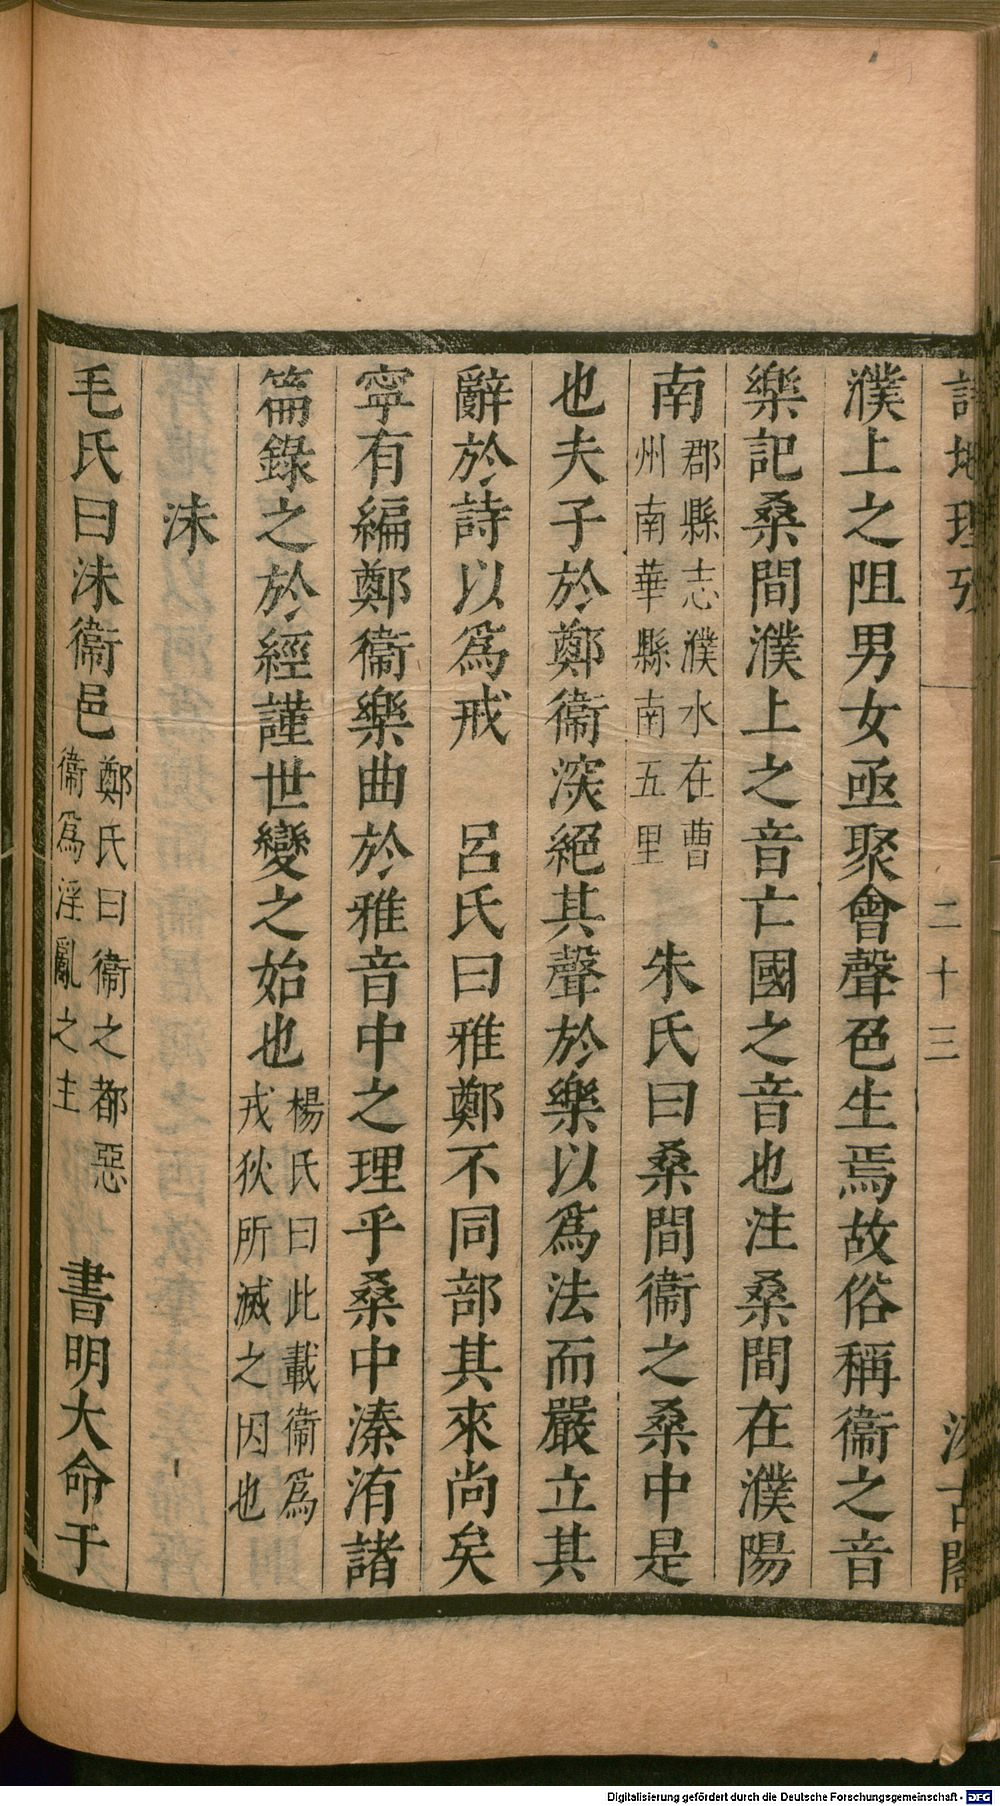 詩地理攷 二十三 汲古閣
濮上之阻男女亟聚會聲色生焉故俗稱衞之音
樂記桑間濮上之音亡國之音也注桑間在濮陽
南郡縣志濮水在曹州南華縣南五里 朱氏曰桑間衞之桑中是
也夫子於鄭衞深絕其聲於樂以爲法而嚴立其
辭於詩以爲戒 呂氏曰雅鄭不同部其來尚矣
寧有編鄭衞樂曲於雅音中之理乎桑中溱洧諸
篇錄之於經謹世變之始也楊氏曰此載衞爲戎狄所滅之因也
沬
毛氏曰沬衞邑鄭氏曰衞之都惡衞爲淫亂之主 書明大命于
Digitalisierung gefördert durch die Deutsche Forschungsgemeinschaft - DFG